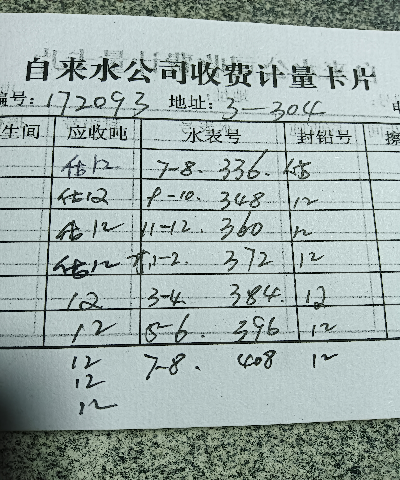 自来水公司收费计量卡片
编号：172093 地址：3-304
生间 应收吨 水表号 封铅号
估12 7-8. 336. 估
估12 9-10. 348 12
估12 11-12. 360 12
估12 1-2. 372 12
12 3-4. 384. 12
12 5-6. 396 12
12 7-8. 408 12
12
12